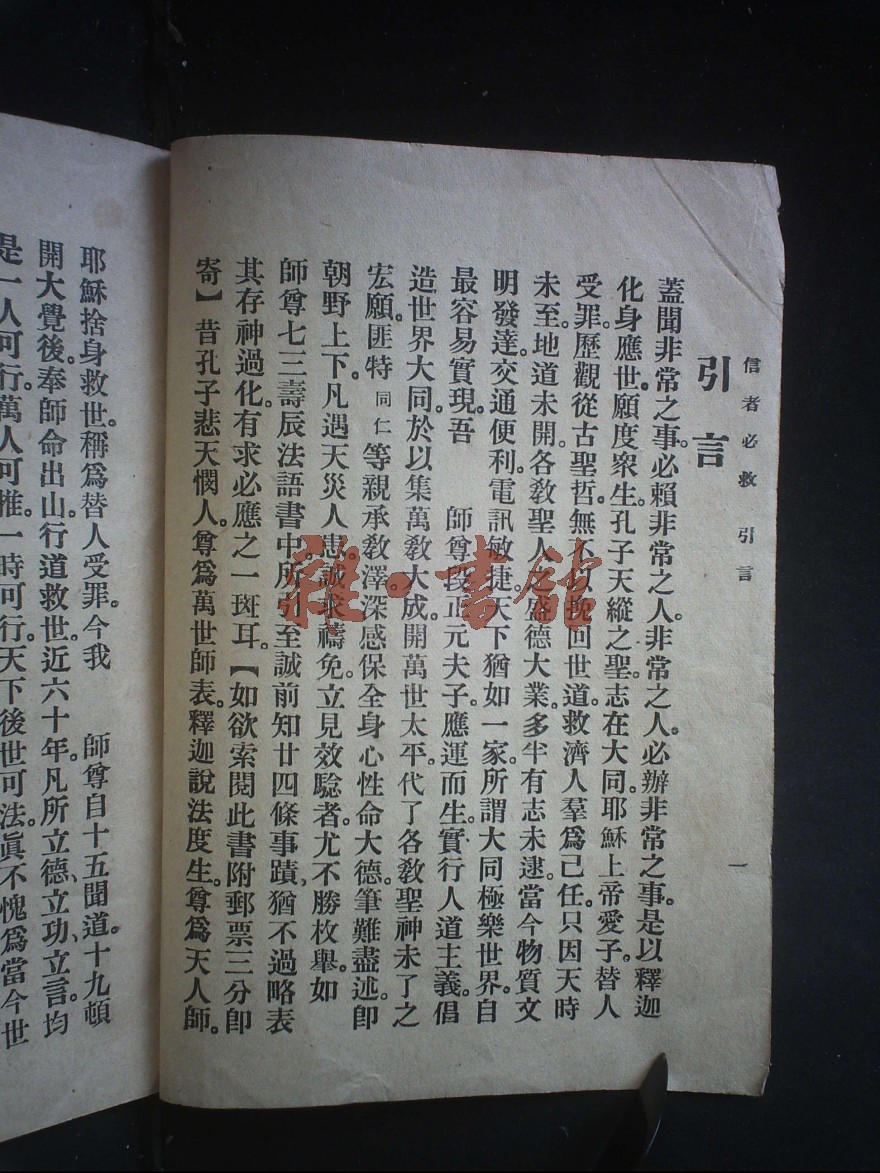 信者必救 引言
一
引言
蓋聞非常之事。必賴非常之人。非常之人。必辦非常之事。是以釋迦
化身應世。願度衆生。孔子天縱之聖。志在大同。耶穌上帝愛子。替人
受罪。歷觀從古聖哲。無不以挽回世道。救濟人羣爲己任。只因天時
未至。地道未開。各敎聖人之盛德大業。多半有志未逮。當今物質文
明發達。交通便利。電訊敏捷。天下猶如一家。所謂大同極樂世界。自
最容易實現。吾 師尊段正元夫子。應運而生。實行人道主義。倡
造世界大同。於以集萬敎大成。開萬世太平。代了各敎聖神未了之
宏願。匪特同仁等親承敎澤。深感保全身心性命大德。筆難盡述。卽
朝野上下。凡遇天災人患。誠求禱免。立見效騐者。尤不勝枚舉。如
師尊七三壽辰法語書中。所引至誠前知廿四條事蹟。猶不過略表
其存神過化。有求必應之一斑耳。【如欲索閱此書附郵票三分卽
寄】昔孔子悲天憫人。尊爲萬世師表。釋迦說法度生。尊爲天人師。
耶穌捨身救世。稱爲替人受罪。今我 師尊自十五聞道。十九頓
開大覺後。奉師命出山。行道救世。近六十年。凡所立德、立功、立言。均
是一人可行。萬人可推。一時可行。天下後世可法。眞不愧爲當今世
雜·書館